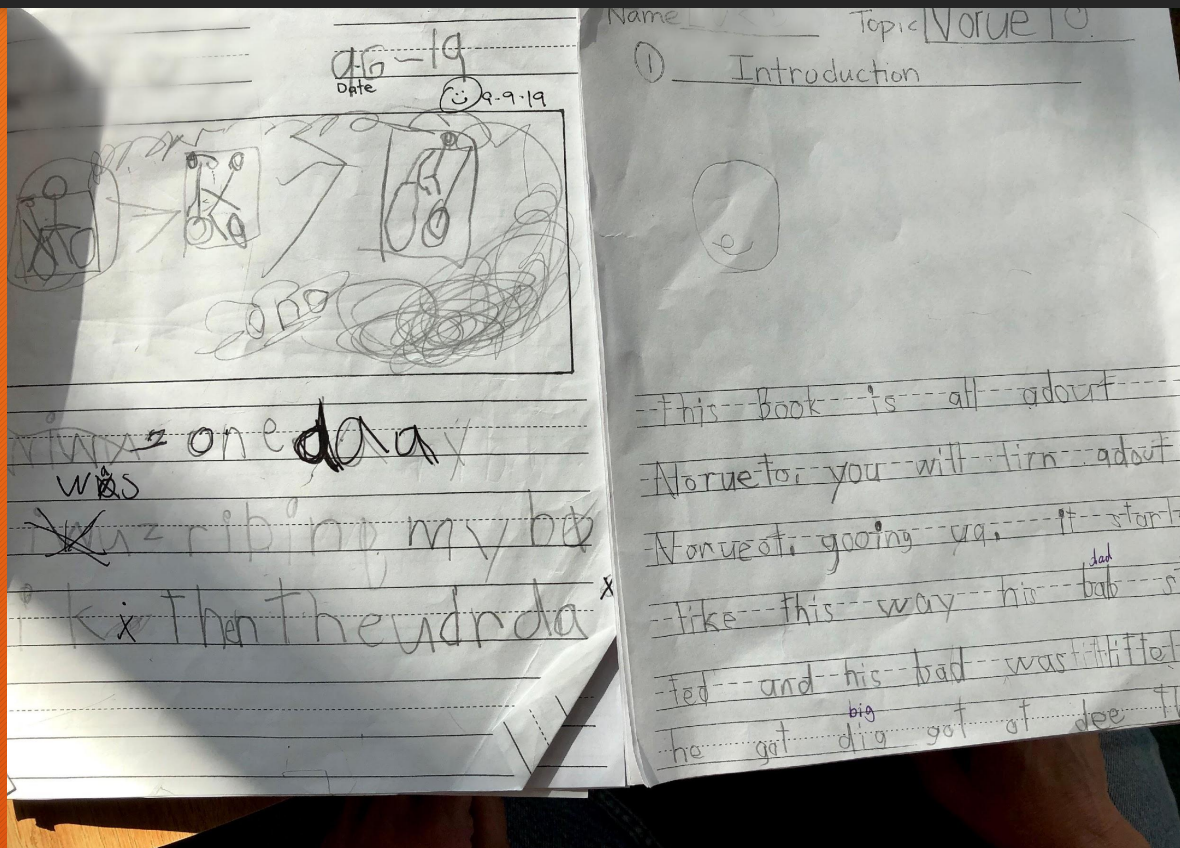 96-19
Date
9-9-19
ono
one daay
was
ribing my bo
ik Then The udrda
Name
Topic Norueto
1 Introduction
this Book is all adourt
Norueto. you will lirn adout
Norueot. gooing up. it start
dad
like this way his bab s
ted and his bad was littel
big
he got dig got ot dee